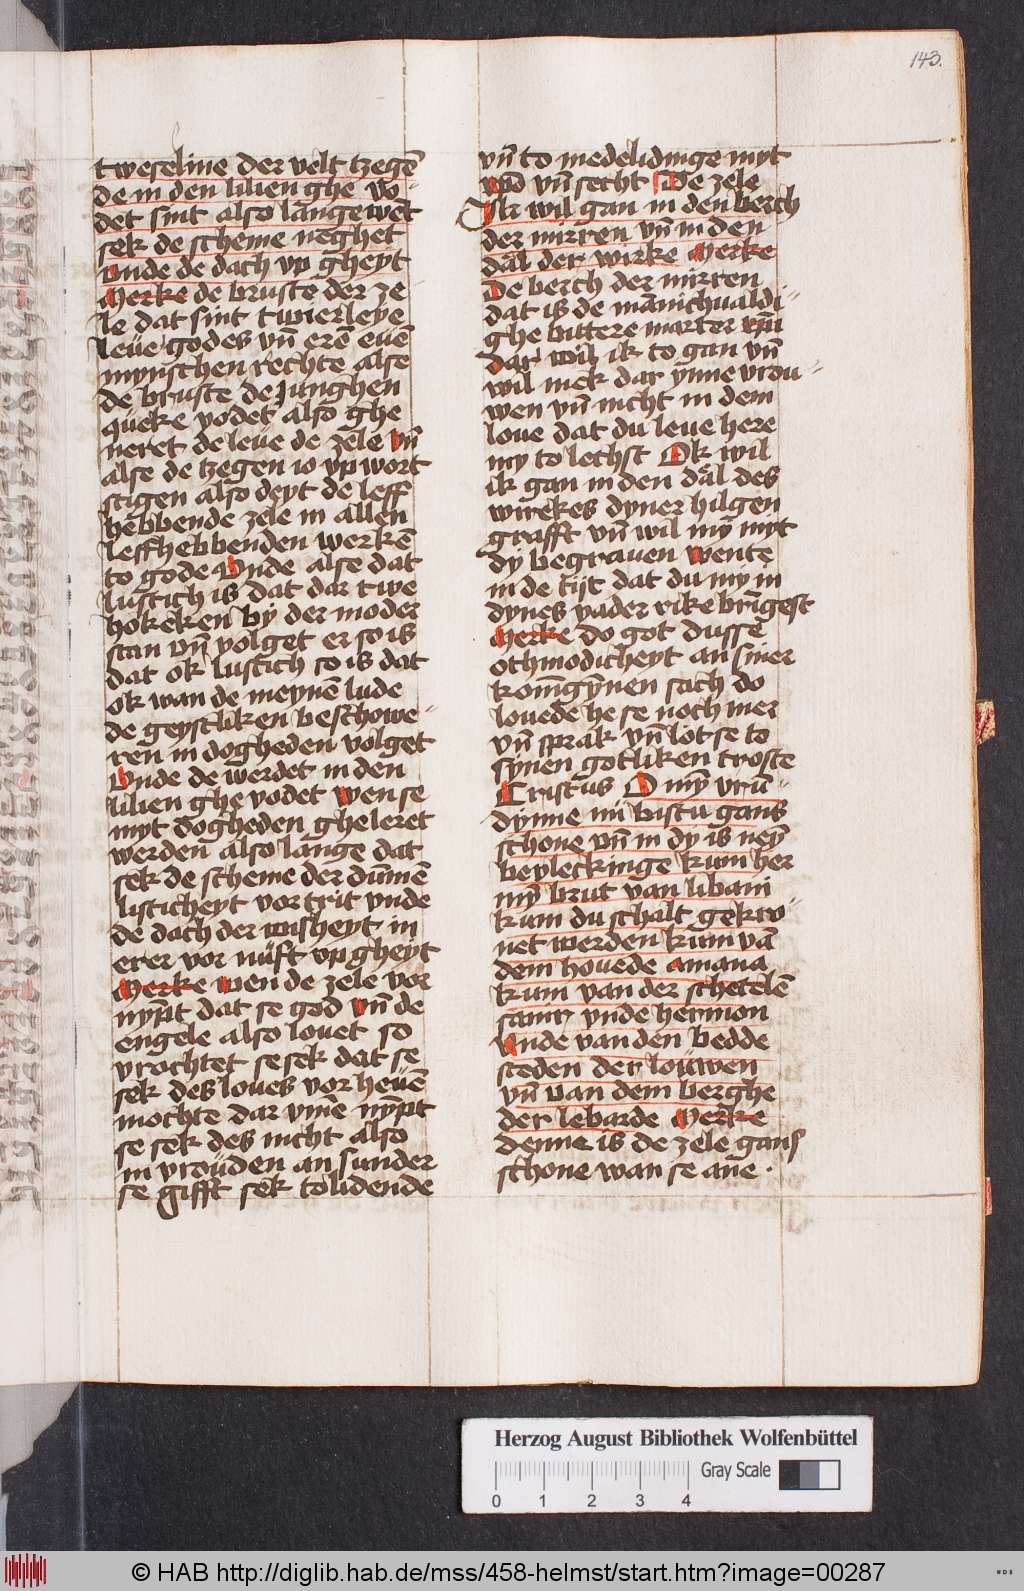 143.
tweseline der velt tzegē
de in den lilien ghe vo-
det sint also lange wēt
sek de scheme neghet
Unde de dach vp gheyt
Merke de bruste der ze
le dat sint twierleye
leue godes vn̄ erē euē
mynschen rechte alse
de bruste de Junghen
queke vodet also ghe
neret de leue de zele vn̄
alse de tzegen io vp wort
stigen also deyt de leff
hebbende zele in allen
leffhebbenden werkē
to gode Unde alse dat
lustich is dat dar twe
hokeken by der moder
stan vn̄ volget er so is
dat ok lustich so is dat
ok wan de meynē lude
de geystliken beschowe-
ren in dogheden volget
Unde de werdet in den
lilien ghe vodet wen se
myt dogheden gheleret
werden also lange dat
sek de scheme der dūmē
listicheyt vortrit vnde
de dach der wisheyt in
erer vor nuft vp gheyt
Merke wen de zele vor
nympt dat se god vn̄ de
engele also louet so
vrochtet se sek dat se
sek des loues vor heuē
mochte dar vmē nympt
se sek des nicht also
in vrouden an sunder
se gifft sek to lidende
vn̄ to medelidinge myt
vn̄ secht De zele
Ik wil gan in den berch
der mirren vn̄ in den
dal der wirke Merke
De berch der mirren
dat is de mānichualdi-
ghe bittere marter vn̄
dar wil ik to gan vn̄
wil mek dar ynne vrou-
wen vn̄ nicht in dem
loue dat du leue here
my to lechst Ok wil
ik gan in den dal des
wirekes dyner hilgen
grafft vn̄ wil my myt
dy begrauen wente
in de tijt dat du my in
dynes vader rike brīgest
Merke do got dusse
othmodicheyt an siner
konīgynnen sach do
louede he se noch mer
vn̄ sprak vn̄ lot se to
synen gotliken troste
Cristus O my vrū-
dynne nu bistu gans
schone vn̄ in dy is ney
beuleckinge kum her
my brut van libani
kum du schalt gekro-
net werden kum vā
dem houede amana
kum van der schetelē
sanir vnde hermon
Unde van den bedde
steden der louwen
vn̄ van dem berghe
der lebarde Merke
denne is de zele gans
schone wan se ane
Herzog August Bibliothek Wolfenbüttel
Gray Scale
0 1 2 3 4
© HAB http://diglib.hab.de/mss/458-helmst/start.htm?image=00287